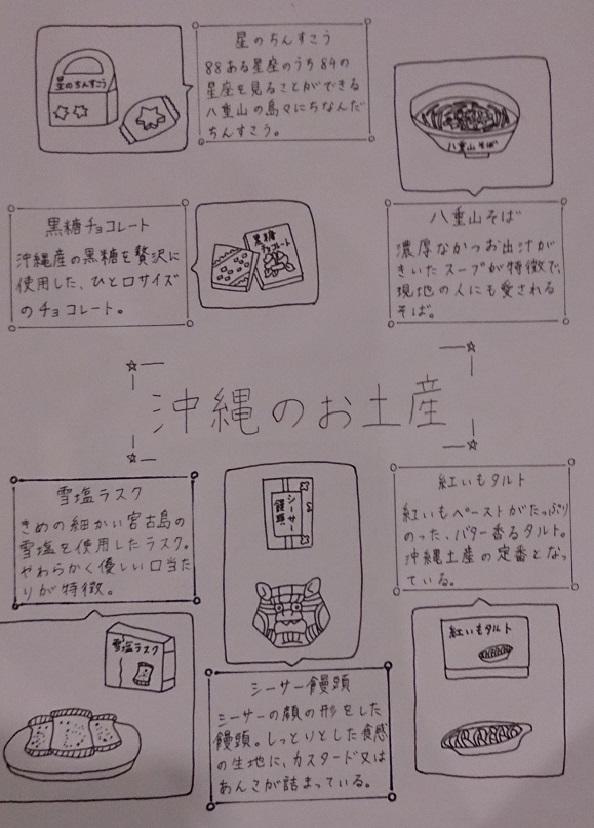 星のちんすこう
星のちんすこう
88ある星座のうち84の
星座を見ることができる
八重山の島々にちなんだ
ちんすこう。
八重山そば
八重山そば
濃厚なかつお出汁が
きいたスープが特徴で、
現地の人にも愛される
そば。
黒糖チョコレート
沖縄産の黒糖を贅沢に
使用した、ひと口サイズ
のチョコレート。
黒糖
チョコレート
沖縄のお土産
雪塩ラスク
きめの細かい宮古島の
雪塩を使用したラスク。
やわらかく優しい口当た
りが特徴。
雪塩ラスク
シーサー
饅頭
シーサー饅頭
シーサーの顔の形をした
饅頭。しっとりとした食感
の生地に、カスタード又は
あんこが詰まっている。
紅いもタルト
紅いもペーストがたっぷり
のった、バター香るタルト。
沖縄土産の定番となっ
ている。
紅いもタルト